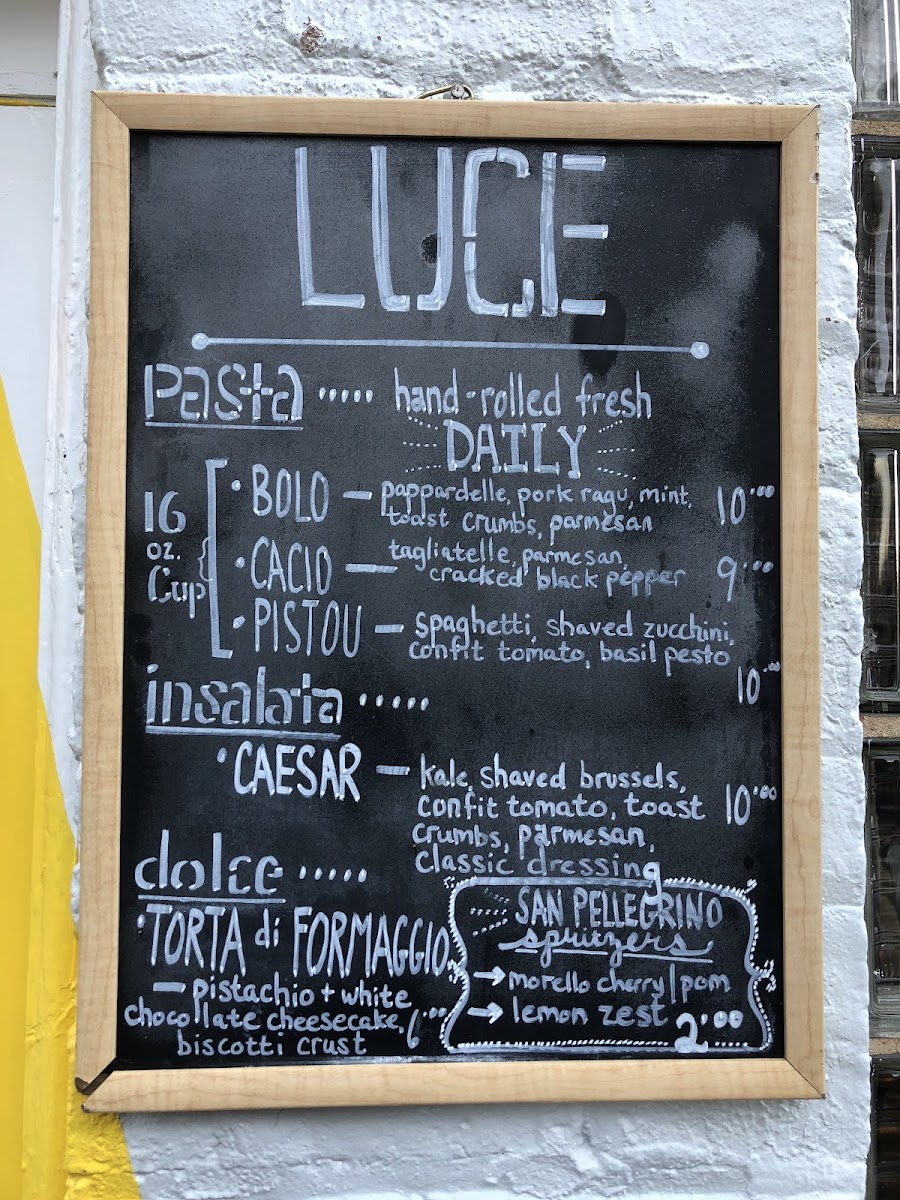 LUCE
pasta ..... hand-rolled fresh
DAILY
16 oz. Cup
• BOLO – pappardelle, pork ragu, mint, 10.00
toast crumbs, parmesan
• CACIO – tagliatelle, parmesan, 9.00
cracked black pepper
• PISTOU – spaghetti, shaved zucchini,
confit tomato, basil pesto
10.00
insalata .....
• CAESAR – kale, shaved brussels,
confit tomato, toast 10.00
crumbs, parmesan,
classic dressing
dolce .....
• TORTA di FORMAGGIO
– pistachio + white
chocolate cheesecake, 6.00
biscotti crust
SAN PELLEGRINO
spritzers
→ morello cherry | pom
→ lemon zest 2.00